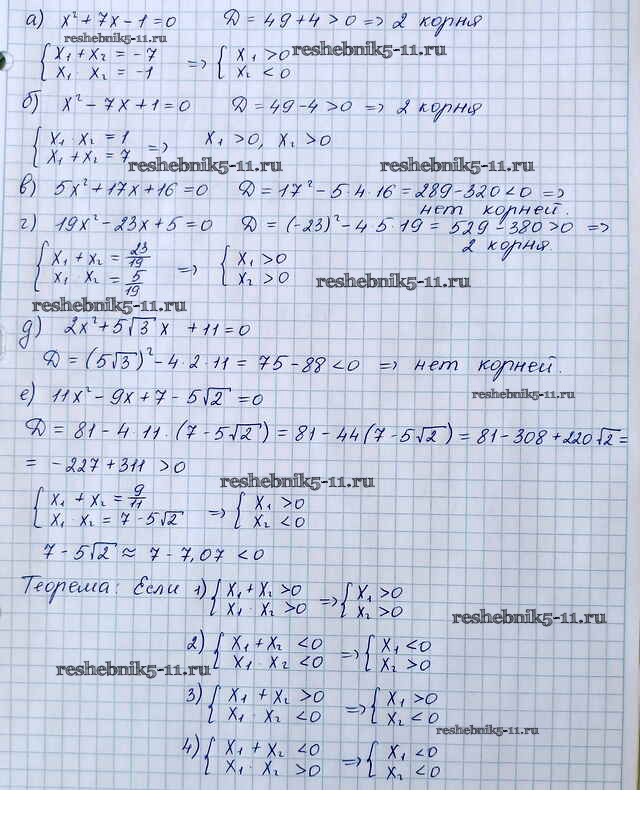 а) x² + 7x - 1 = 0 D = 49 + 4 > 0 => 2 корня
reshebnik5-11.ru reshebnik5-11.ru
{ x₁ + x₂ = -7 => { x₁ > 0
x₁ · x₂ = -1 x₂ < 0
б) x² - 7x + 1 = 0 D = 49 - 4 > 0 => 2 корня
{ x₁ · x₂ = 1 => x₁ > 0, x₂ > 0
x₁ + x₂ = 7
reshebnik5-11.ru reshebnik5-11.ru
в) 5x² + 17x + 16 = 0 D = 17² - 5·4·16 = 289 - 320 < 0 =>
нет корней.
г) 19x² - 23x + 5 = 0 D = (-23)² - 4·5·19 = 529 - 380 > 0 =>
2 корня.
{ x₁ + x₂ = 23/19 => { x₁ > 0
x₁ · x₂ = 5/19 x₂ > 0
reshebnik5-11.ru
reshebnik5-11.ru
д) 2x² + 5√3 x + 11 = 0
D = (5√3)² - 4·2·11 = 75 - 88 < 0 => нет корней.
reshebnik5-11.ru
е) 11x² - 9x + 7 - 5√2 = 0
D = 81 - 4·11·(7 - 5√2) = 81 - 44(7 - 5√2) = 81 - 308 + 220√2 =
= -227 + 311 > 0
reshebnik5-11.ru
{ x₁ + x₂ = 9/11 => { x₁ > 0
x₁ · x₂ = 7 - 5√2 x₂ < 0
7 - 5√2 ≈ 7 - 7,07 < 0
Теорема: Если 1) { x₁ + x₂ > 0 => { x₁ > 0
x₁ · x₂ > 0 x₂ > 0
reshebnik5-11.ru
2) { x₁ + x₂ < 0 => { x₁ < 0
x₁ · x₂ < 0 x₂ > 0
reshebnik5-11.ru
3) { x₁ + x₂ > 0 => { x₁ > 0
x₁ · x₂ < 0 x₂ < 0
reshebnik5-11.ru
4) { x₁ + x₂ < 0 => { x₁ < 0
x₁ · x₂ > 0 x₂ < 0